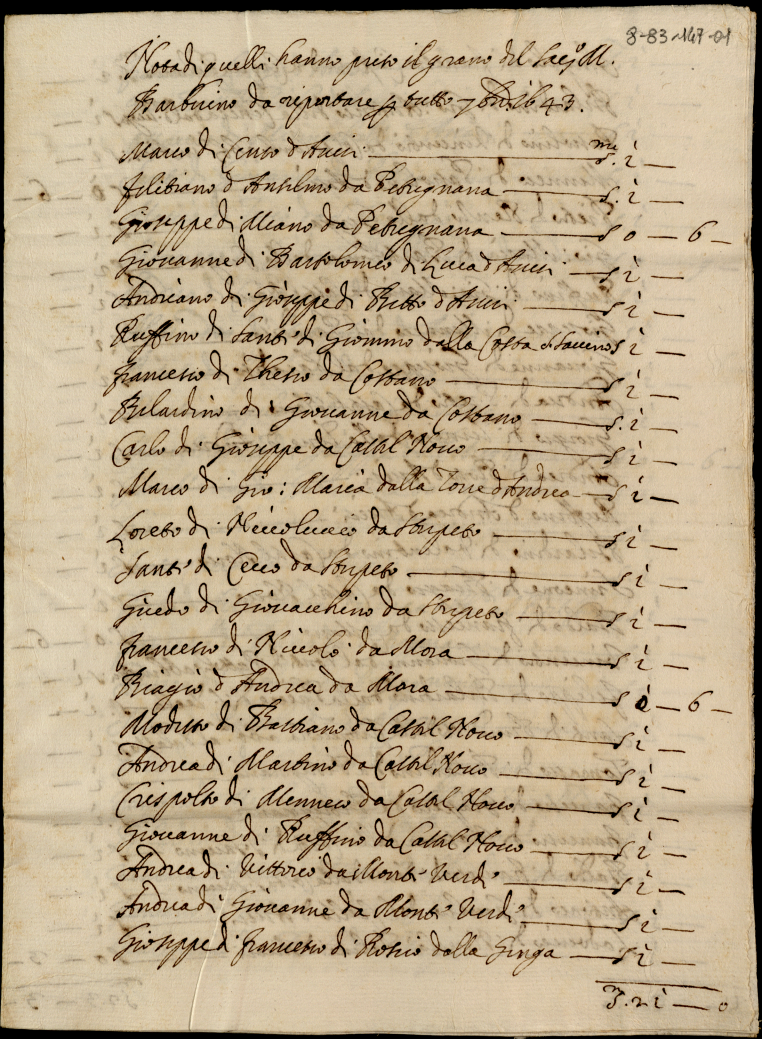 8-83-147-01
Nota di quelli hanno preso il grano del Sacº M.
Barberino da riportare p tutto 7bre 1643.
Marco di Censo d'Ascisi — ma s. i —
Felitiano d'Anselmo da Petregnana — s. i —
Gioseppe di Miano da Petregnana — s 0 — 6 —
Giovanne di Bartolomeo di Luca d'Ascisi — s i —
Andreano di Gioseppe di Bitto d'Ascisi — s i —
Ruffino di Santi di Giommo dalla Costa s i —
Francesco di Thesio da Costano — s i —
Belardino di Giovanne da Costano — s. i —
Carlo di Gioseppe da Castel Novo — s i —
Marco di Gio: Maria dalla Torre d'Andrea — s i —
Loreto di Niccolucco da Stripeto — s i —
Santi di Cecco da Stripeto — s i —
Guedo di Giovacchino da Stripeto — s i —
Francesco di Niccolò da Mora — s i —
Biagio d'Andrea da Mora — s — 6 —
Modesto di Bastiano da Castel Novo — s i —
Andrea di Martino da Castel Novo — s i —
Crespolto di Menneco da Castel Novo — s i —
Giovanne di Ruffino da Castel Novo — s i —
Andrea di Vittorio da Monte Verde — s i —
Andrea di Giovanne da Monte Verde — s i —
Gioseppe di Francesco di Rosio dalla Ginga — s i —
21 — 0